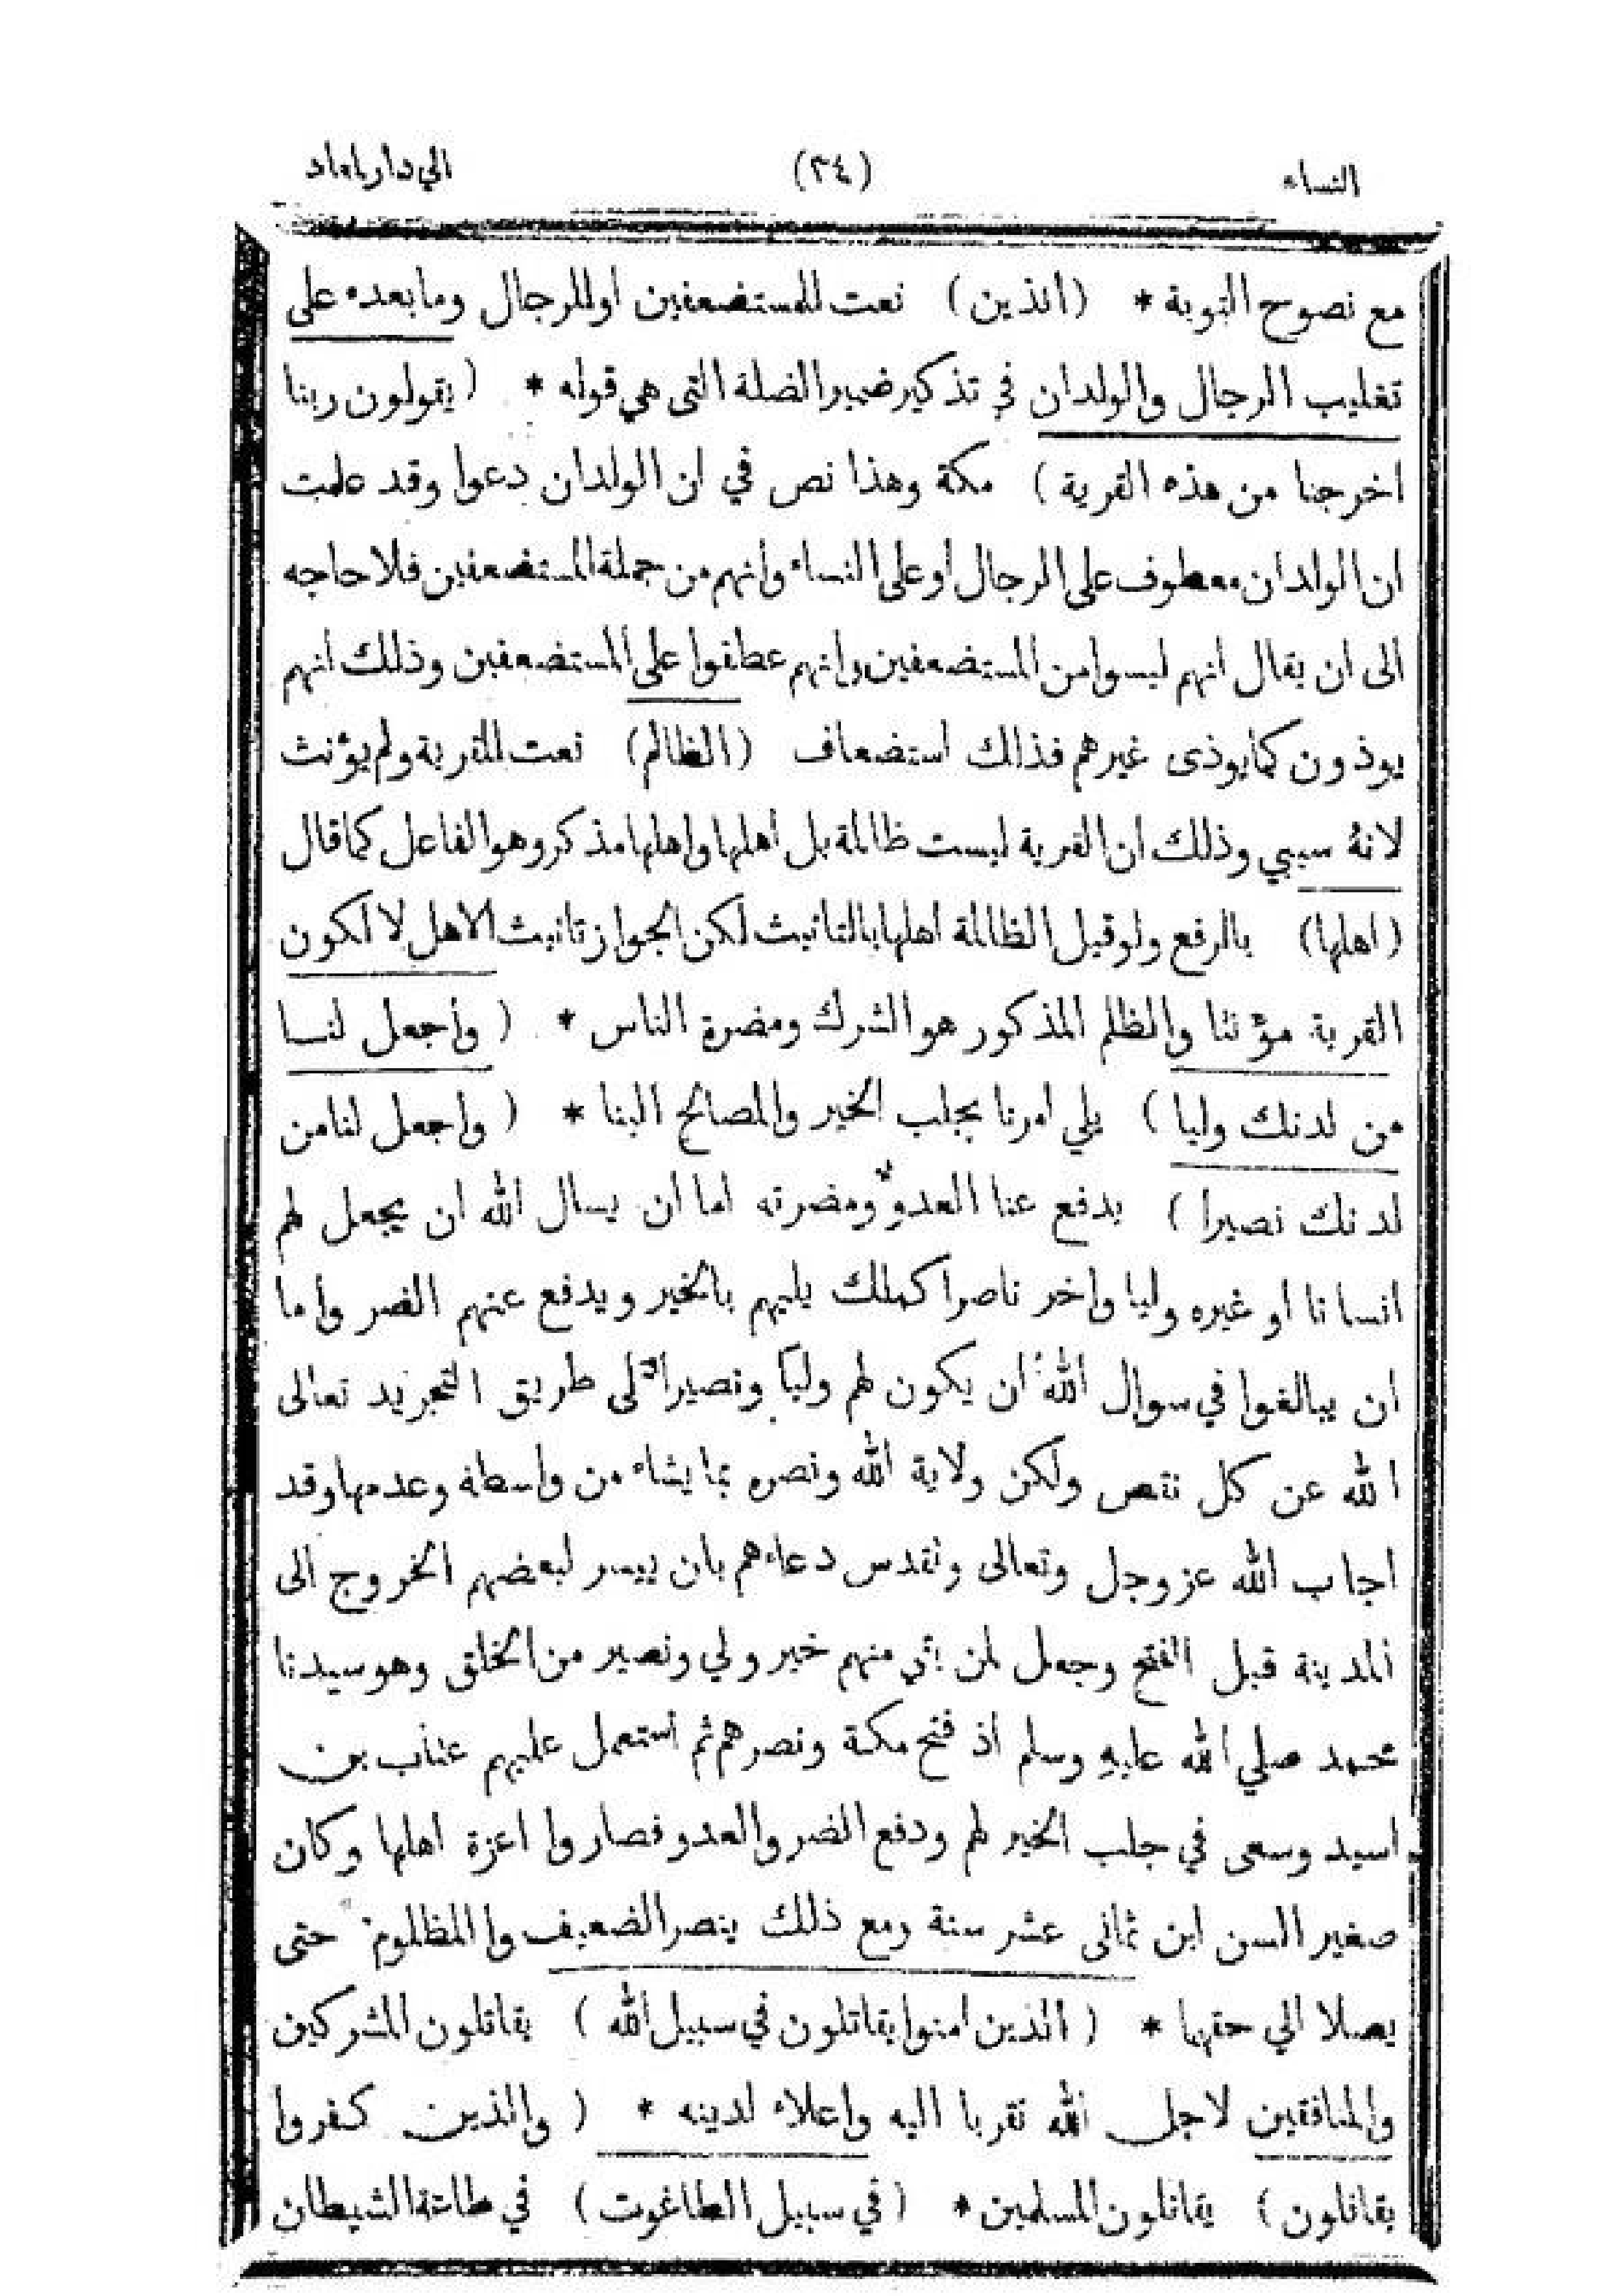 النساء (٣٤) الي دار
مع نصوح التوبة * (الذين) نعت للمستضعفين او للرجال وما بعده على
تغليب الرجال والولدان في تذكير ضمير الصلة التى هي قوله * (يقولون ربنا
اخرجنا من هذه القرية) مكة وهذا نص في ان الولدان دعوا وقد علمت
ان الولدان معطوف على الرجال او على النساء وانهم من جملة المستضعفين فلا حاجه
الى ان يقال انهم ليسوا من المستضعفين وانهم عطفوا على المستضعفين وذلك انهم
يوذون كما يوذى غيرهم فذالك استضعاف (الظالم) نعت للقرية ولم يؤنث
لانهُ سببي وذلك ان القرية ليست ظالمة بل اهلها واهلها مذكر وهو الفاعل كما قال
(اهلها) بالرفع ولو قيل الظالمة اهلها بالتانيث لكن الجواز تانيث الاهل لا لكون
القرية مؤنثا والظلم المذكور هو الشرك ومضرة الناس * (واجعل لنا
من لدنك وليا) يلي امرنا بجلب الخير والمصالح الينا * (واجعل لنا من
لدنك نصيرا) يدفع عنا العدو ومضرته اما ان يسال الله ان يجعل لهم
انسانا او غيره وليا واخر ناصرا كملك يليهم بالخير ويدفع عنهم الضر واما
ان يبالغوا في سوال الله ان يكون لهم وليا ونصيرا على طريق التجريد تعالى
الله عن كل نقص ولكن ولاية الله ونصره بما يشاء من واسطة وعدمها وقد
اجاب الله عز وجل وتعالى وتقدس دعاءهم بان ييسر لبعضهم الخروج الى
المدينة قبل الفتح وجعل لمن بقي منهم خير ولي ونصير من الخلق وهو سيدنا
محمد صلي الله عليهِ وسلم اذ فتح مكة ونصرهم ثم استعمل عليهم عتاب بن
اسيد وسعى في جلب الخير لهم ودفع الضر والعدو فصاروا اعزة اهلها وكان
صغير السن ابن ثمانى عشر سنة ومع ذلك ينصر الضعيف والمظلوم حتى
يصلا الي حقهما * (الذين امنوا يقاتلون في سبيل الله) يقاتلون المشركين
والمنافقين لاجل الله تقربا اليه واعلاء لدينه * (والذين كفروا
يقاتلون) يقاتلون المسلمين * (في سبيل الطاغوت) في طاعة الشيطان